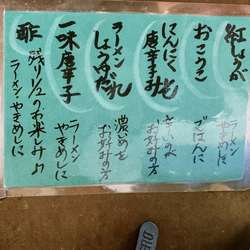 紅しょうが
やきめしに
おこうこ
ごはんに
にんにく
唐辛子
辛いの
お好みの方
ラーメン
しょうゆだれ
濃いめを
お好みの方
一味唐辛子
ラーメン
やきめしに
酢
残り1/2のお楽しみよ
ラーメン・やきめしに